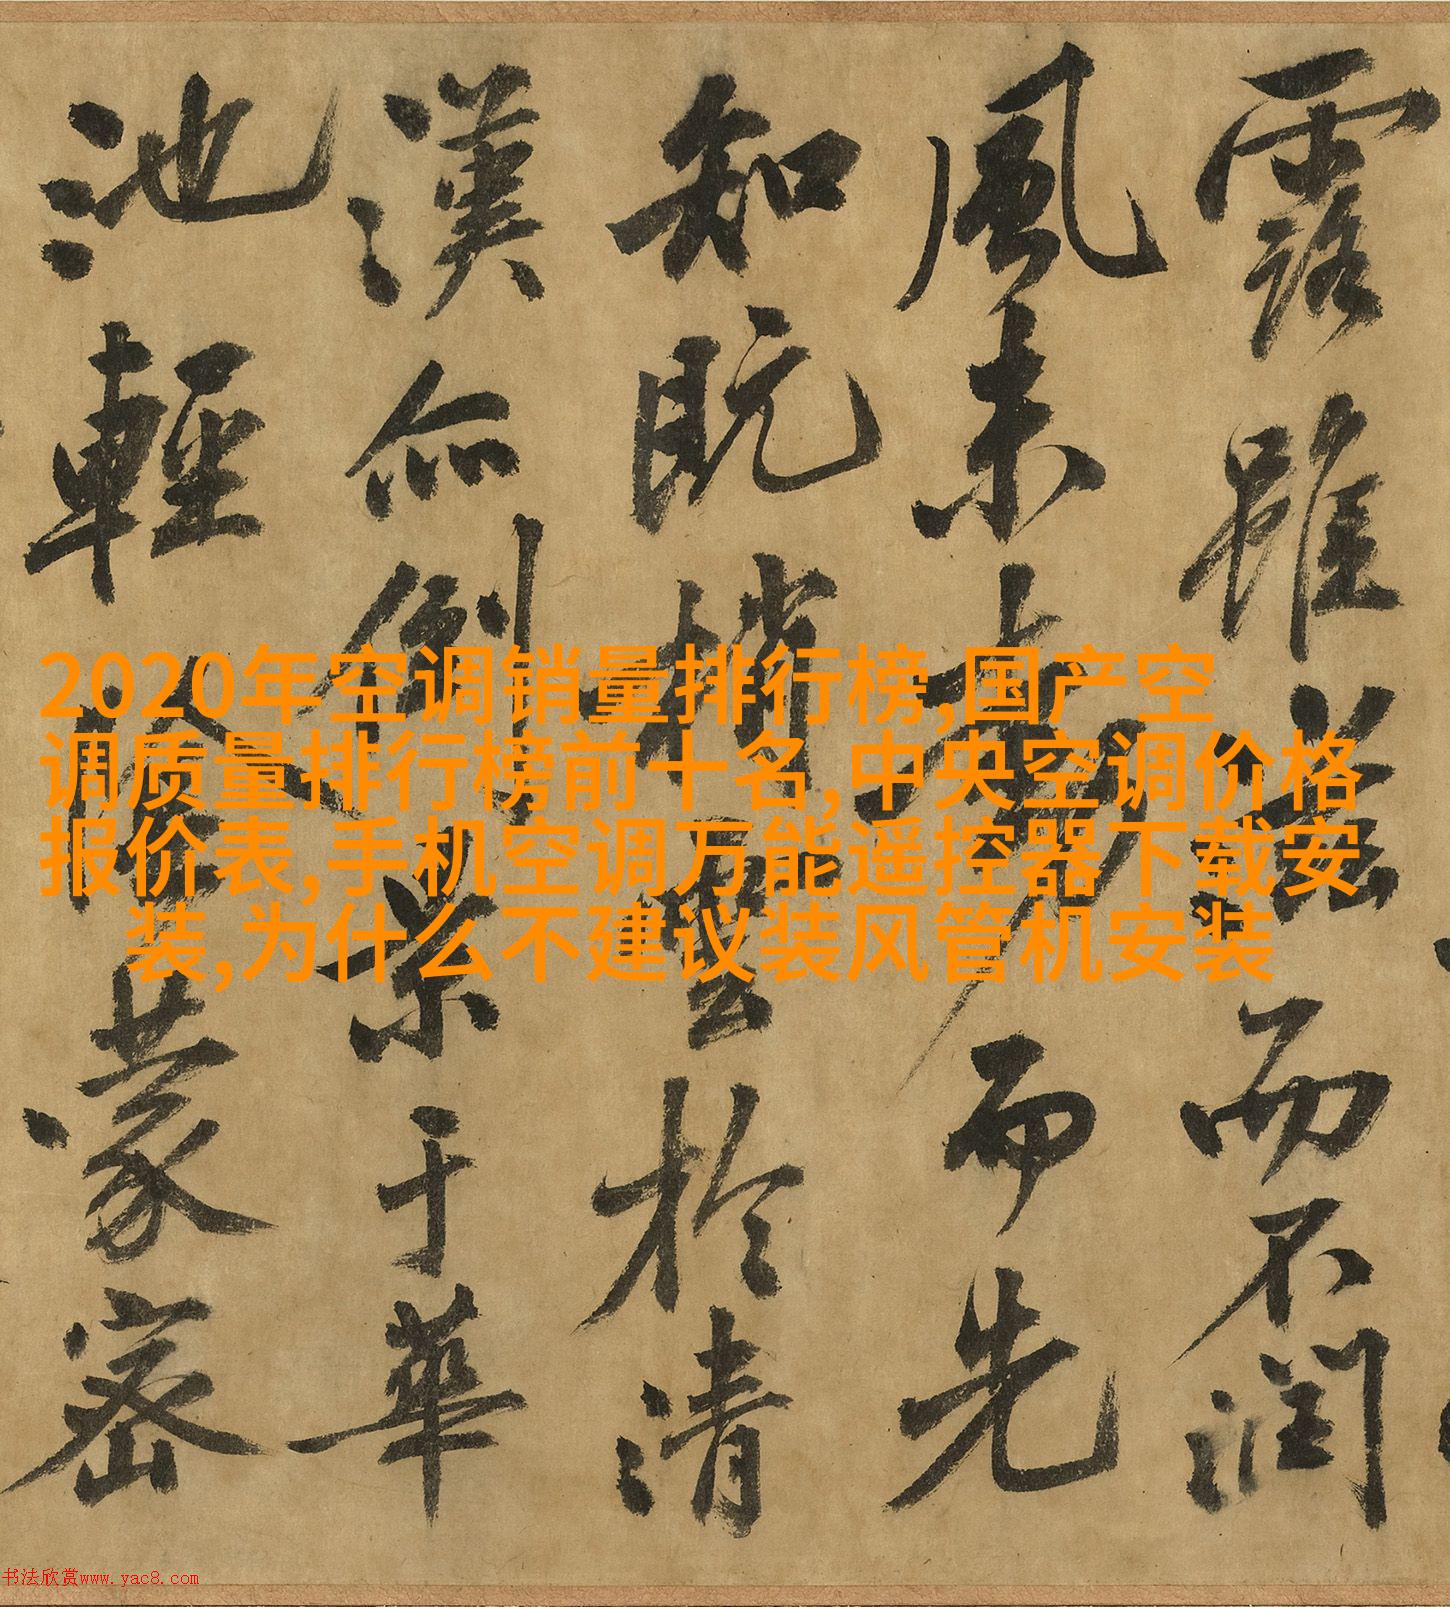 露雖滋而不潤
風未動而先
知既梢雲於清
漢亦倒景于華
池輕蒙密
2020年空调销量排行榜,国产空
调质量排行榜前十名,中央空调价格
报价表,手机空调万能遥控器下载安
装,为什么不建议装风管机安装
书法欣赏www.yac8.com